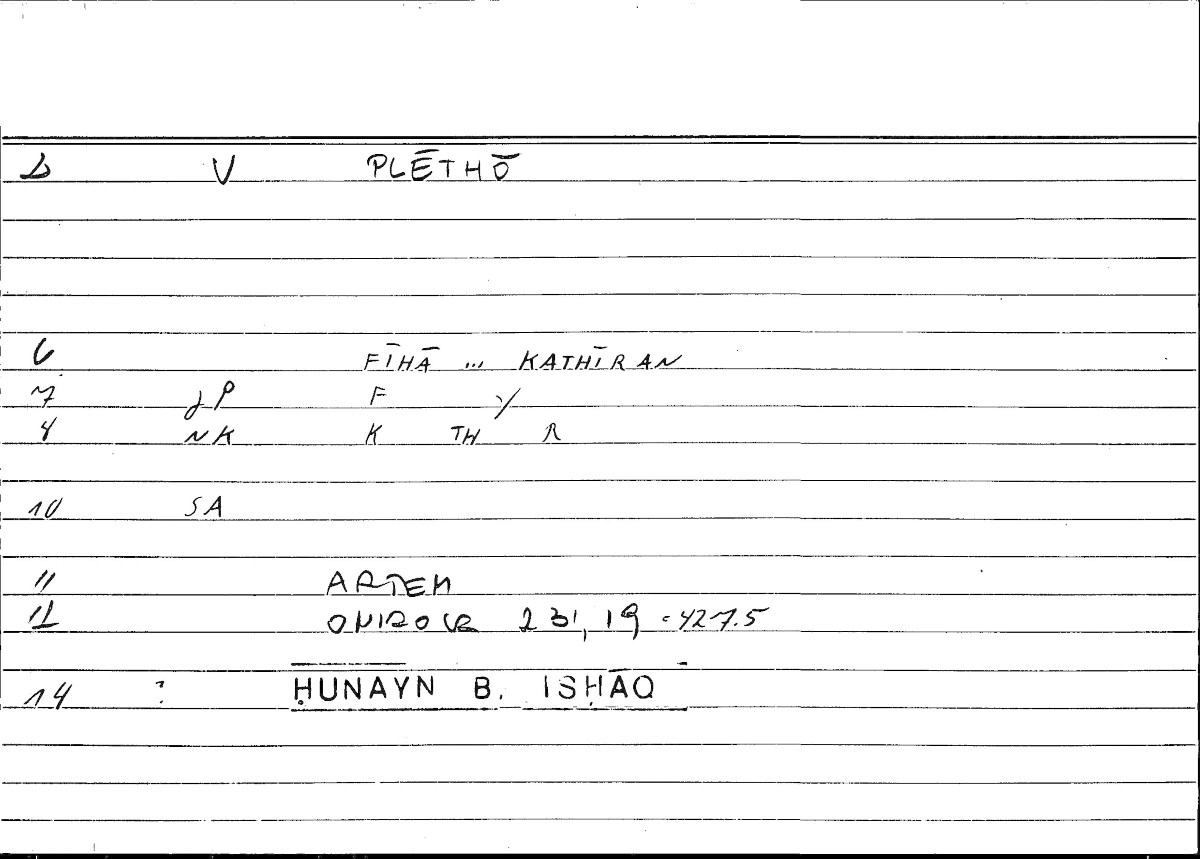 1 V PLĒTHŌ
6 FĪHĀ ... KATHĪRAN
7 JP F Y
8 NK K TH R
10 SA
11 ARTEM
12 ONIROCR 231,19 = 427.5
14 ? ḤUNAYN B. ISḤĀQ